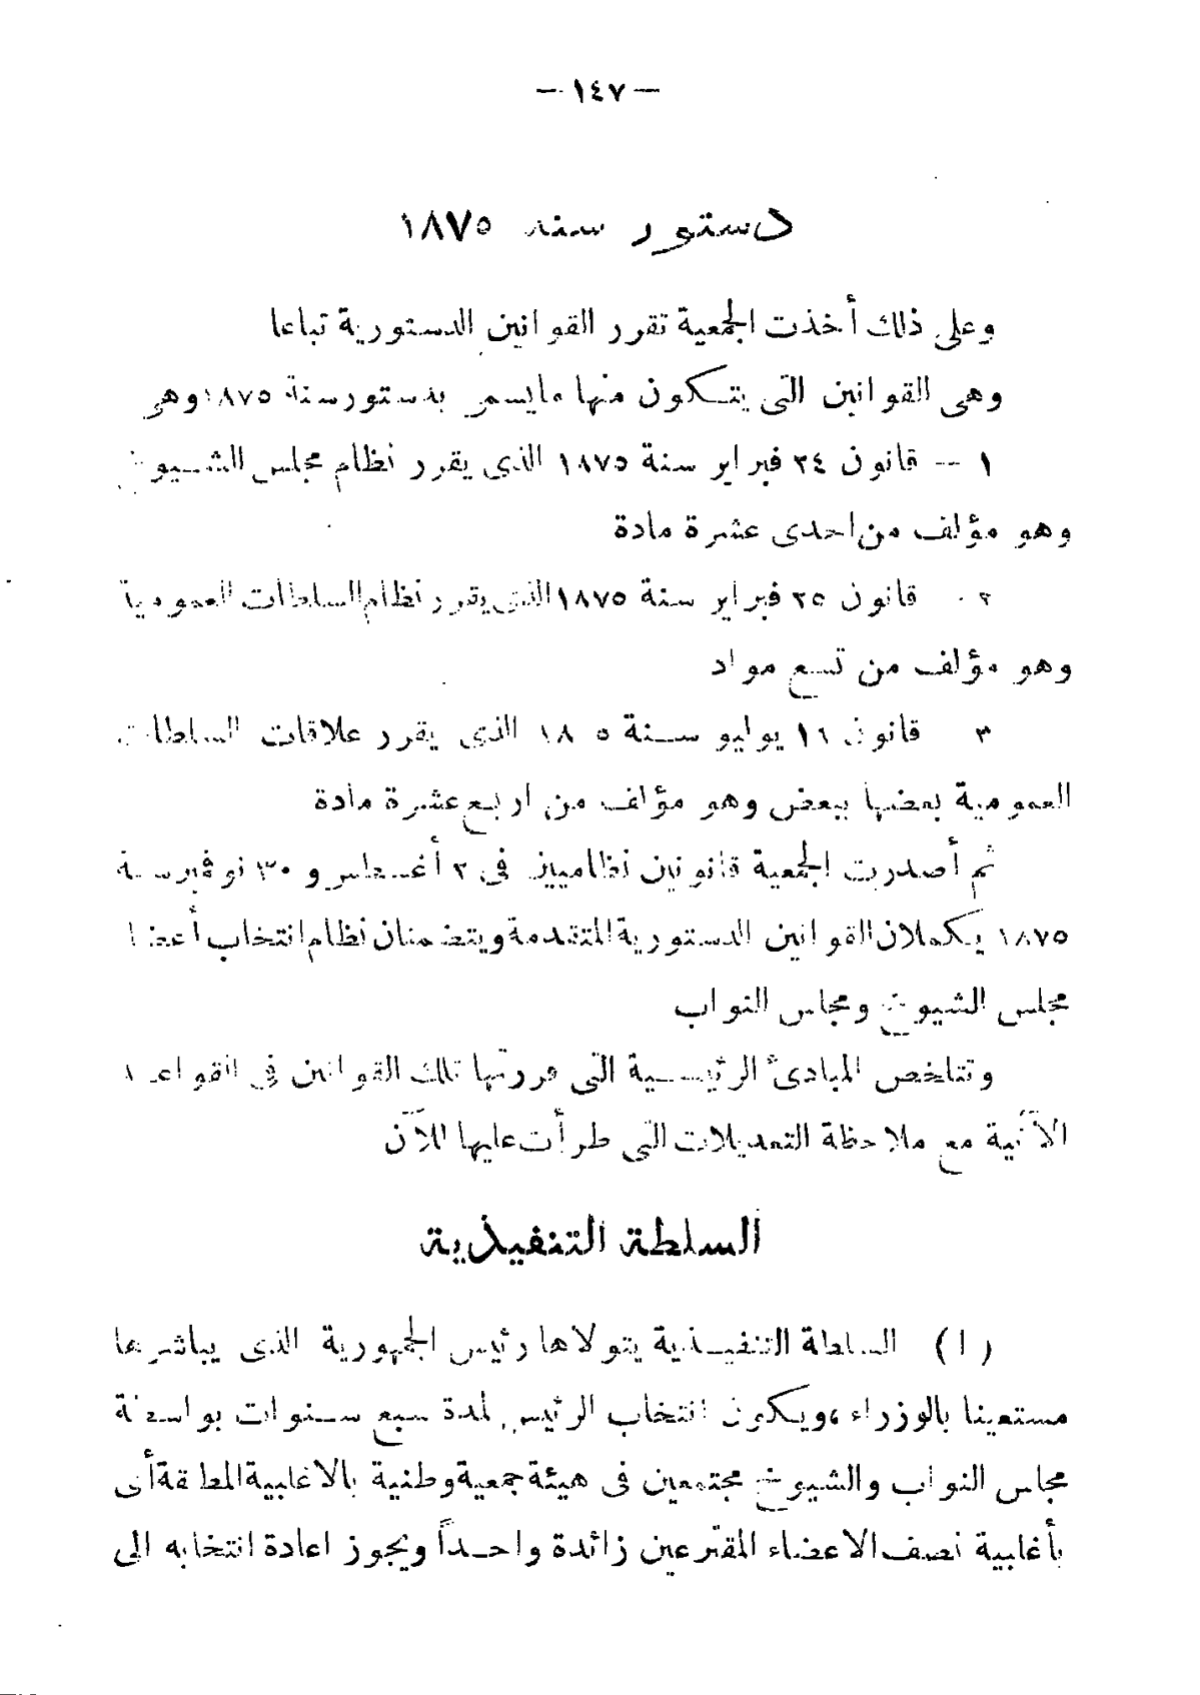 — ١٤٧ —
دستور سنة ١٨٧٥
وعلى ذلك أخذت الجمعية تقرر القوانين الدستورية تباعا
وهى القوانين التى يتكون منها مايسمى بدستورسنة ١٨٧٥وهى
١ -- قانون ٢٤ فبراير سنة ١٨٧٥ الذى يقرر نظام مجلس الشيوخ
وهو مؤلف من احدى عشرة مادة
٢ - قانون ٢٥ فبراير سنة ١٨٧٥ الذى يقرر نظام السلطات العمومية
وهو مؤلف من تسع مواد
٣ قانون ١٦ يوليو سنة ١٨ ٥ الذى يقرر علاقات السلطات
العمومية بعضها ببعض وهو مؤلف من اربع عشرة مادة
ثم أصدرت الجمعية قانونين نظاميين فى ٢ أغسطس و ٣٠ نوفمبرسنة
١٨٧٥ يكملان القوانين الدستورية المتقدمة ويتضمنان نظام انتخاب أعضا
مجلس الشيوخ ومجلس النواب
وتتلخص المبادئ الرئيسية التى قررتها تلك القوانين فى القواعد
الآتية مع ملاحظة التعديلات التى طرأت عليها للآن
السلطة التنفيذية
( ا ) السلطة التنفيذية يتولاها رئيس الجمهورية الذى يباشرها
مستعينا بالوزراء ،ويكون انتخاب الرئيس لمدة سبع سنوات بواسطة
مجلس النواب والشيوخ مجتمعين فى هيئة جمعية وطنية بالاغلبية المطلقة أى
بأغلبية نصف الاعضاء المقترعين زائدة واحداً ويجوز اعادة انتخابه الى